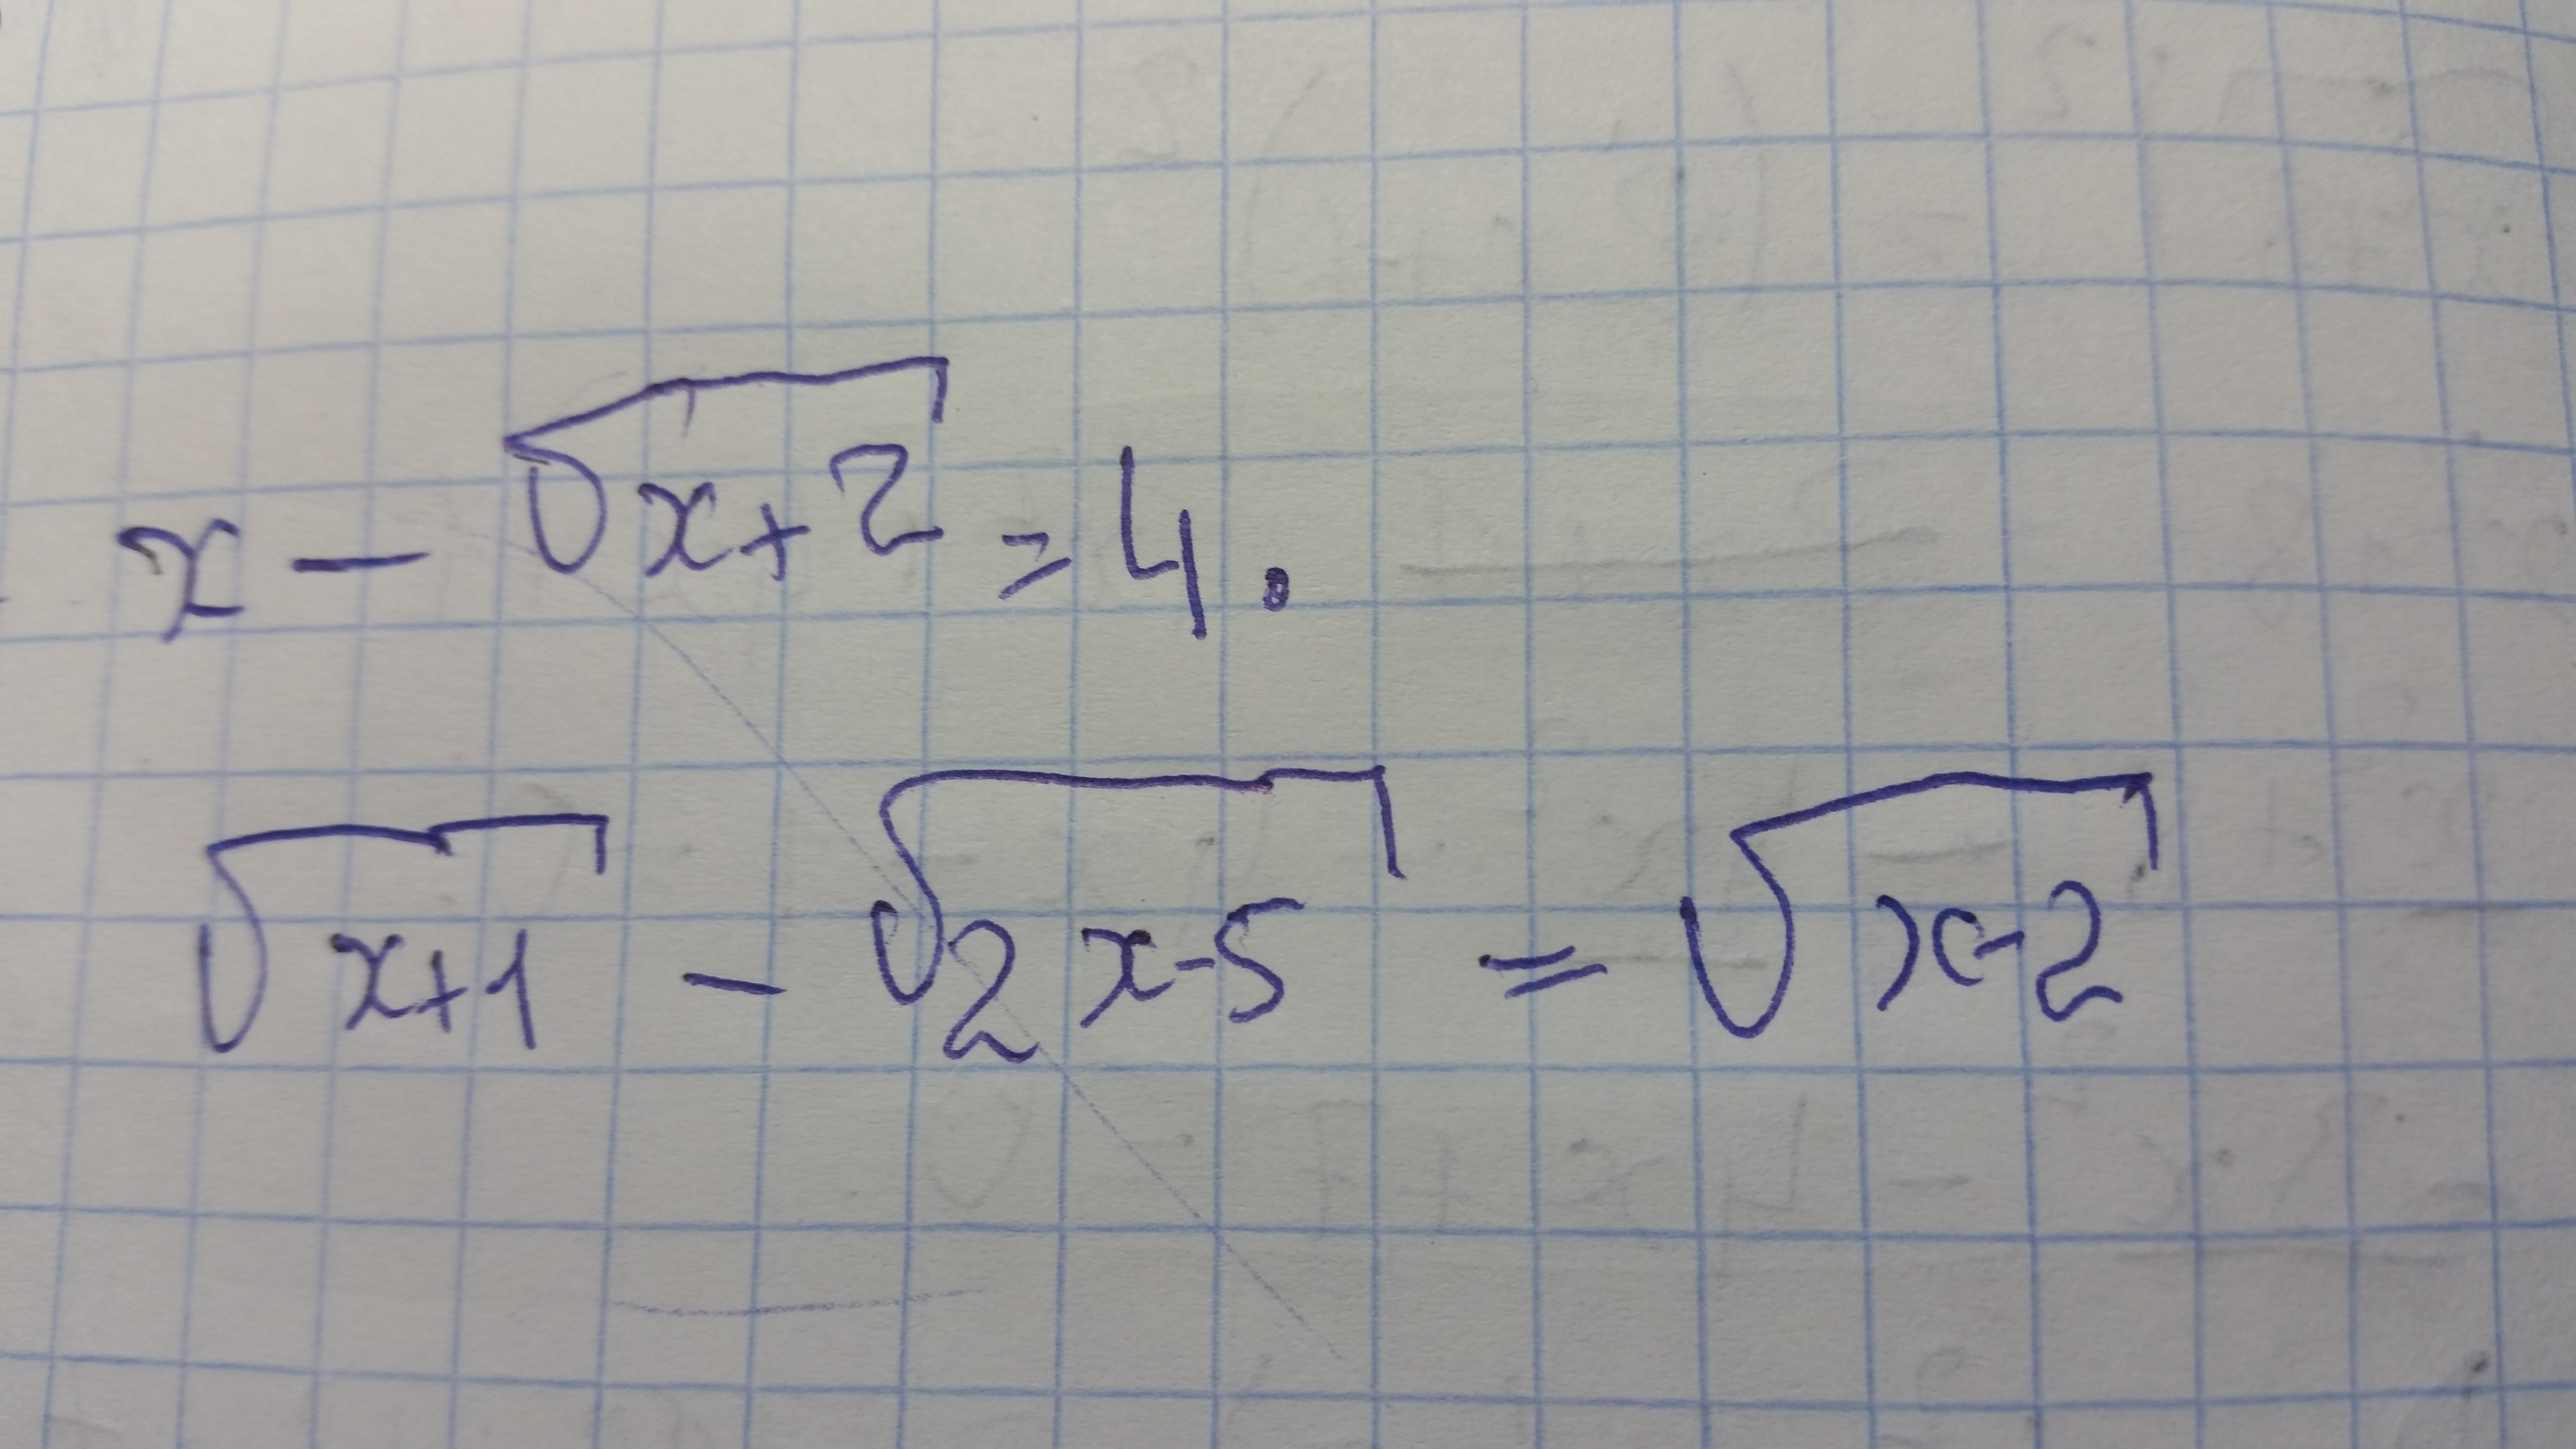 x - √x+2 = 4.
√x+1 - √2x-5 = √x-2